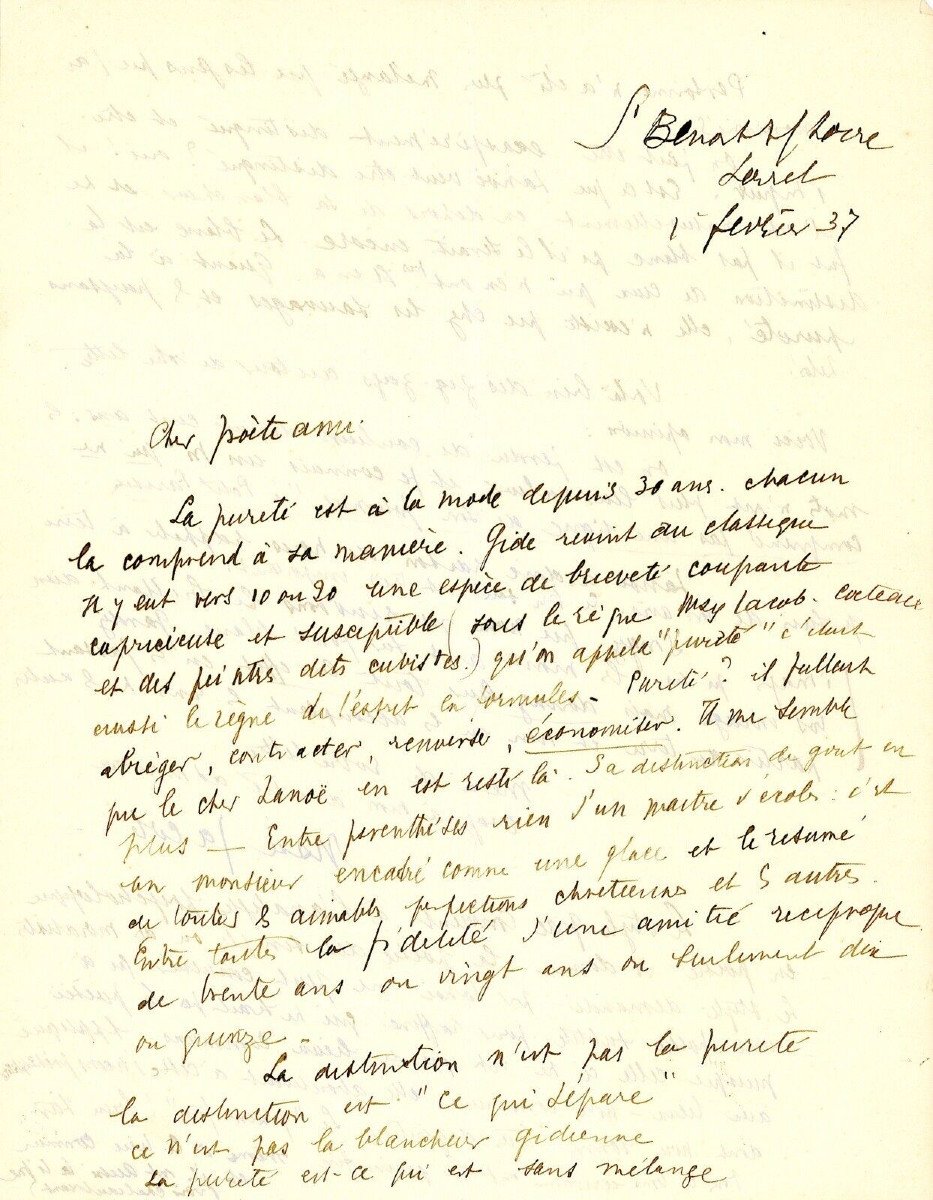 St Benoit s/ Loire
Loiret
1 février 37
Cher poète ami.
La pureté est à la mode depuis 30 ans. chacun
la comprend à sa manière. Gide revint au classique
Il y eut vers 10 ou 20 une espèce de brièveté coupante
capricieuse et susceptible (sous le règne Max Jacob. Cocteau
et des peintres dits cubistes.) qu'on appela "pureté" c'était
aussi le règne de l'esprit en formules - Pureté ? il fallait
abréger, contracter, renverser, économiser. Il me semble
que le cher Lanoë en est resté là. Sa distinction de goût en
plus — Entre parenthèses rien d'un maître d'école : c'est
un monsieur encadré comme une glace et le résumé
de toutes les aimables perfections chrétiennes et les autres.
Entre toutes la fidélité d'une amitié réciproque
de trente ans ou vingt ans ou seulement dix
ou quinze
La distinction n'est pas la pureté
la distinction est "ce qui sépare"
ce n'est pas la blancheur gidienne
La pureté est ce qui est sans mélange